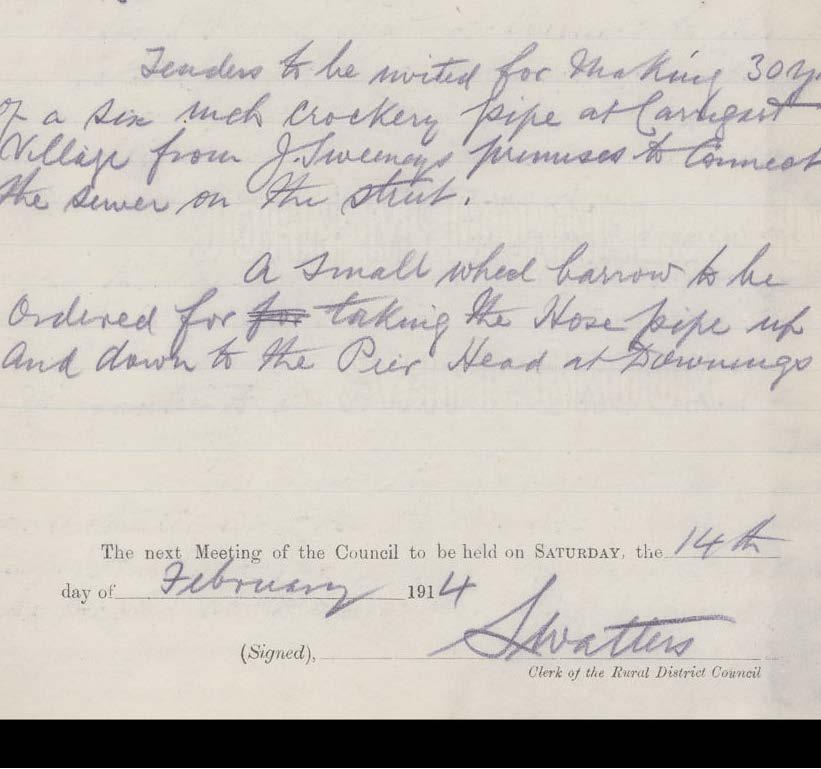 Tenders to be invited for making 30 y
of a six inch crockery pipe at Carrigart
Village from J. Sweeneys premises to Connect
the sewer on the street.
A small wheel barrow to be
Ordered for for taking the Hose pipe up
And down to the Pier Head at Downings
The next Meeting of the Council to be held on SATURDAY, the 14th
day of February 1914
(Signed), S Watters
Clerk of the Rural District Council